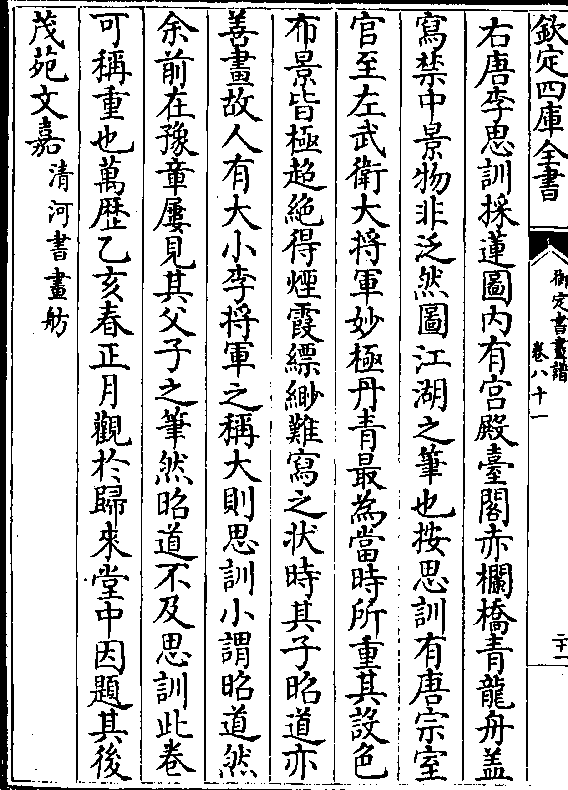 欽定四庫全書
御定書畫譜
卷八十一
二十二
右唐李思訓採蓮圖内有宫殿臺閣赤欄橋青龍舟盖
寫禁中景物非泛然圖江湖之筆也按思訓有唐宗室
官至左武衛大將軍妙極丹青最為當時所重其設色
布景皆極超絶得煙霞縹緲難寫之状時其子昭道亦
善畫故人有大小李將軍之稱大則思訓小謂昭道然
余前在豫章屢見其父子之筆然昭道不及思訓此卷
可稱重也萬歴乙亥春正月觀於歸來堂中因題其後
茂苑文嘉 清河書畫舫